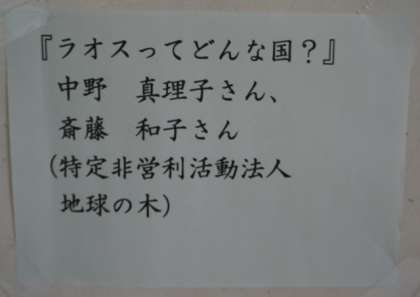 『ラオスってどんな国？』
中野　真理子さん、
斎藤　和子さん
(特定非営利活動法人
地球の木)